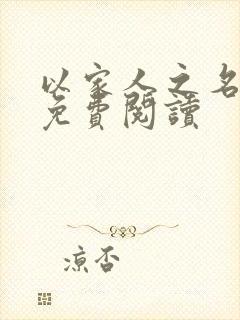 以家人之名
免費閱讀
凉否